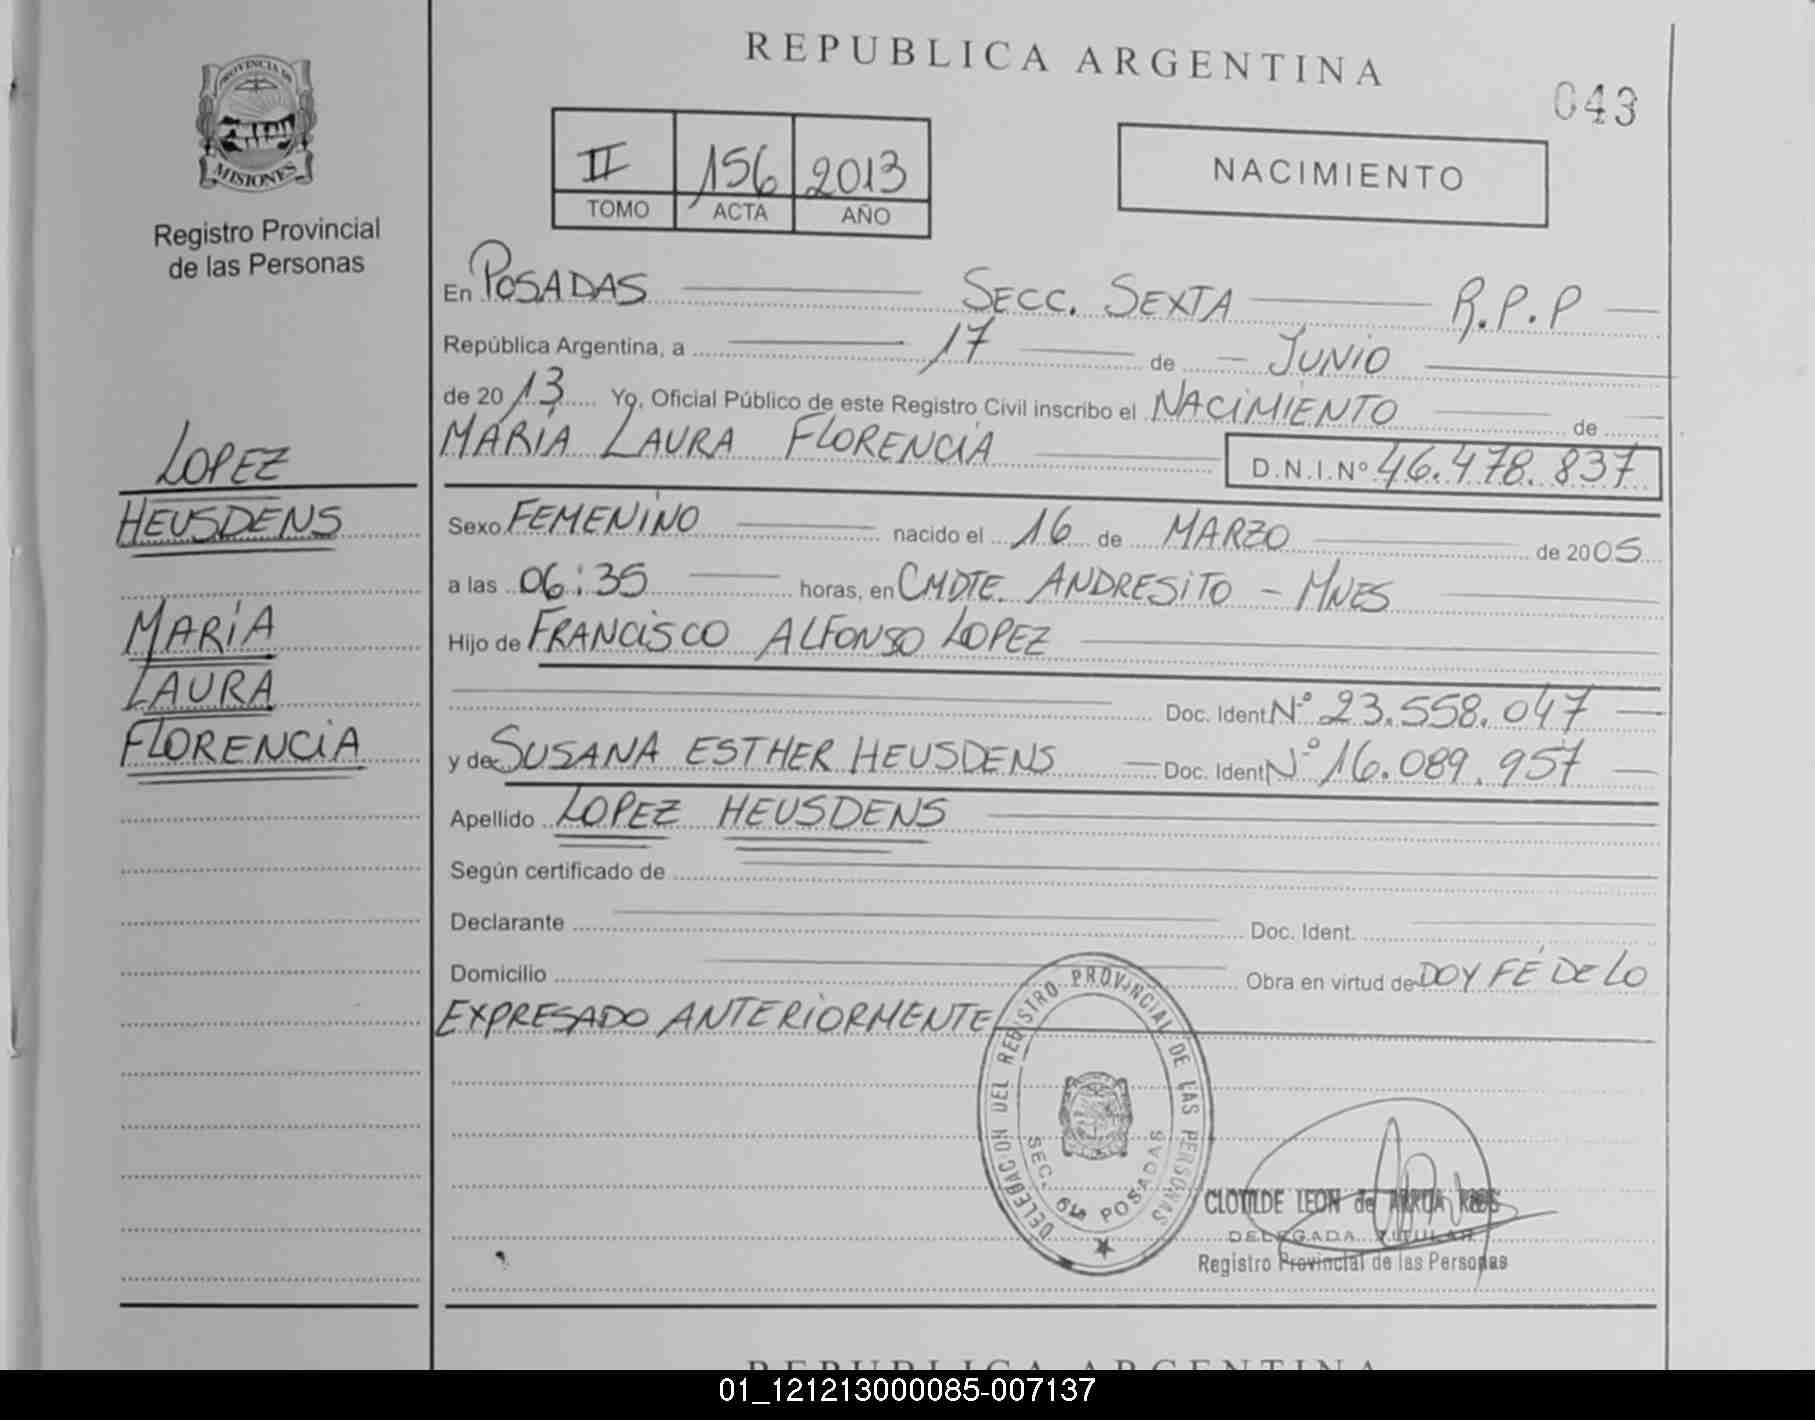 REPUBLICA ARGENTINA
043
PROVINCIA DE
MISIONES
Registro Provincial
de las Personas
II 156 2013
TOMO ACTA AÑO
NACIMIENTO
En POSADAS SECC. SEXTA R.P.P
República Argentina, a 17 de JUNIO
de 20 13 Yo, Oficial Público de este Registro Civil inscribo el NACIMIENTO de
MARÍA LAURA FLORENCIA D.N.I.Nº 46.478.837
LOPEZ
HEUSDENS
MARÍA
LAURA
FLORENCIA
Sexo FEMENINO nacido el 16 de MARZO de 2005
a las 06:35 horas, en CMDTE. ANDRESITO - MNES
Hijo de FRANCISCO ALFONSO LOPEZ
Doc. Ident Nº 23.558.047
y de SUSANA ESTHER HEUSDENS Doc. Ident Nº 16.089.957
Apellido LOPEZ HEUSDENS
Según certificado de
Declarante Doc. Ident.
Domicilio Obra en virtud de DOY FÉ DE LO
EXPRESADO ANTERIORMENTE
DELEGACION DEL REGISTRO PROVINCIAL DE LAS PERSONAS
SEC. 6ta POSADAS
CLOTILDE LEON de ARRUA RIOS
DELEGADA TITULAR
Registro Provincial de las Personas
REPUBLICA ARGENTINA
01_121213000085-007137